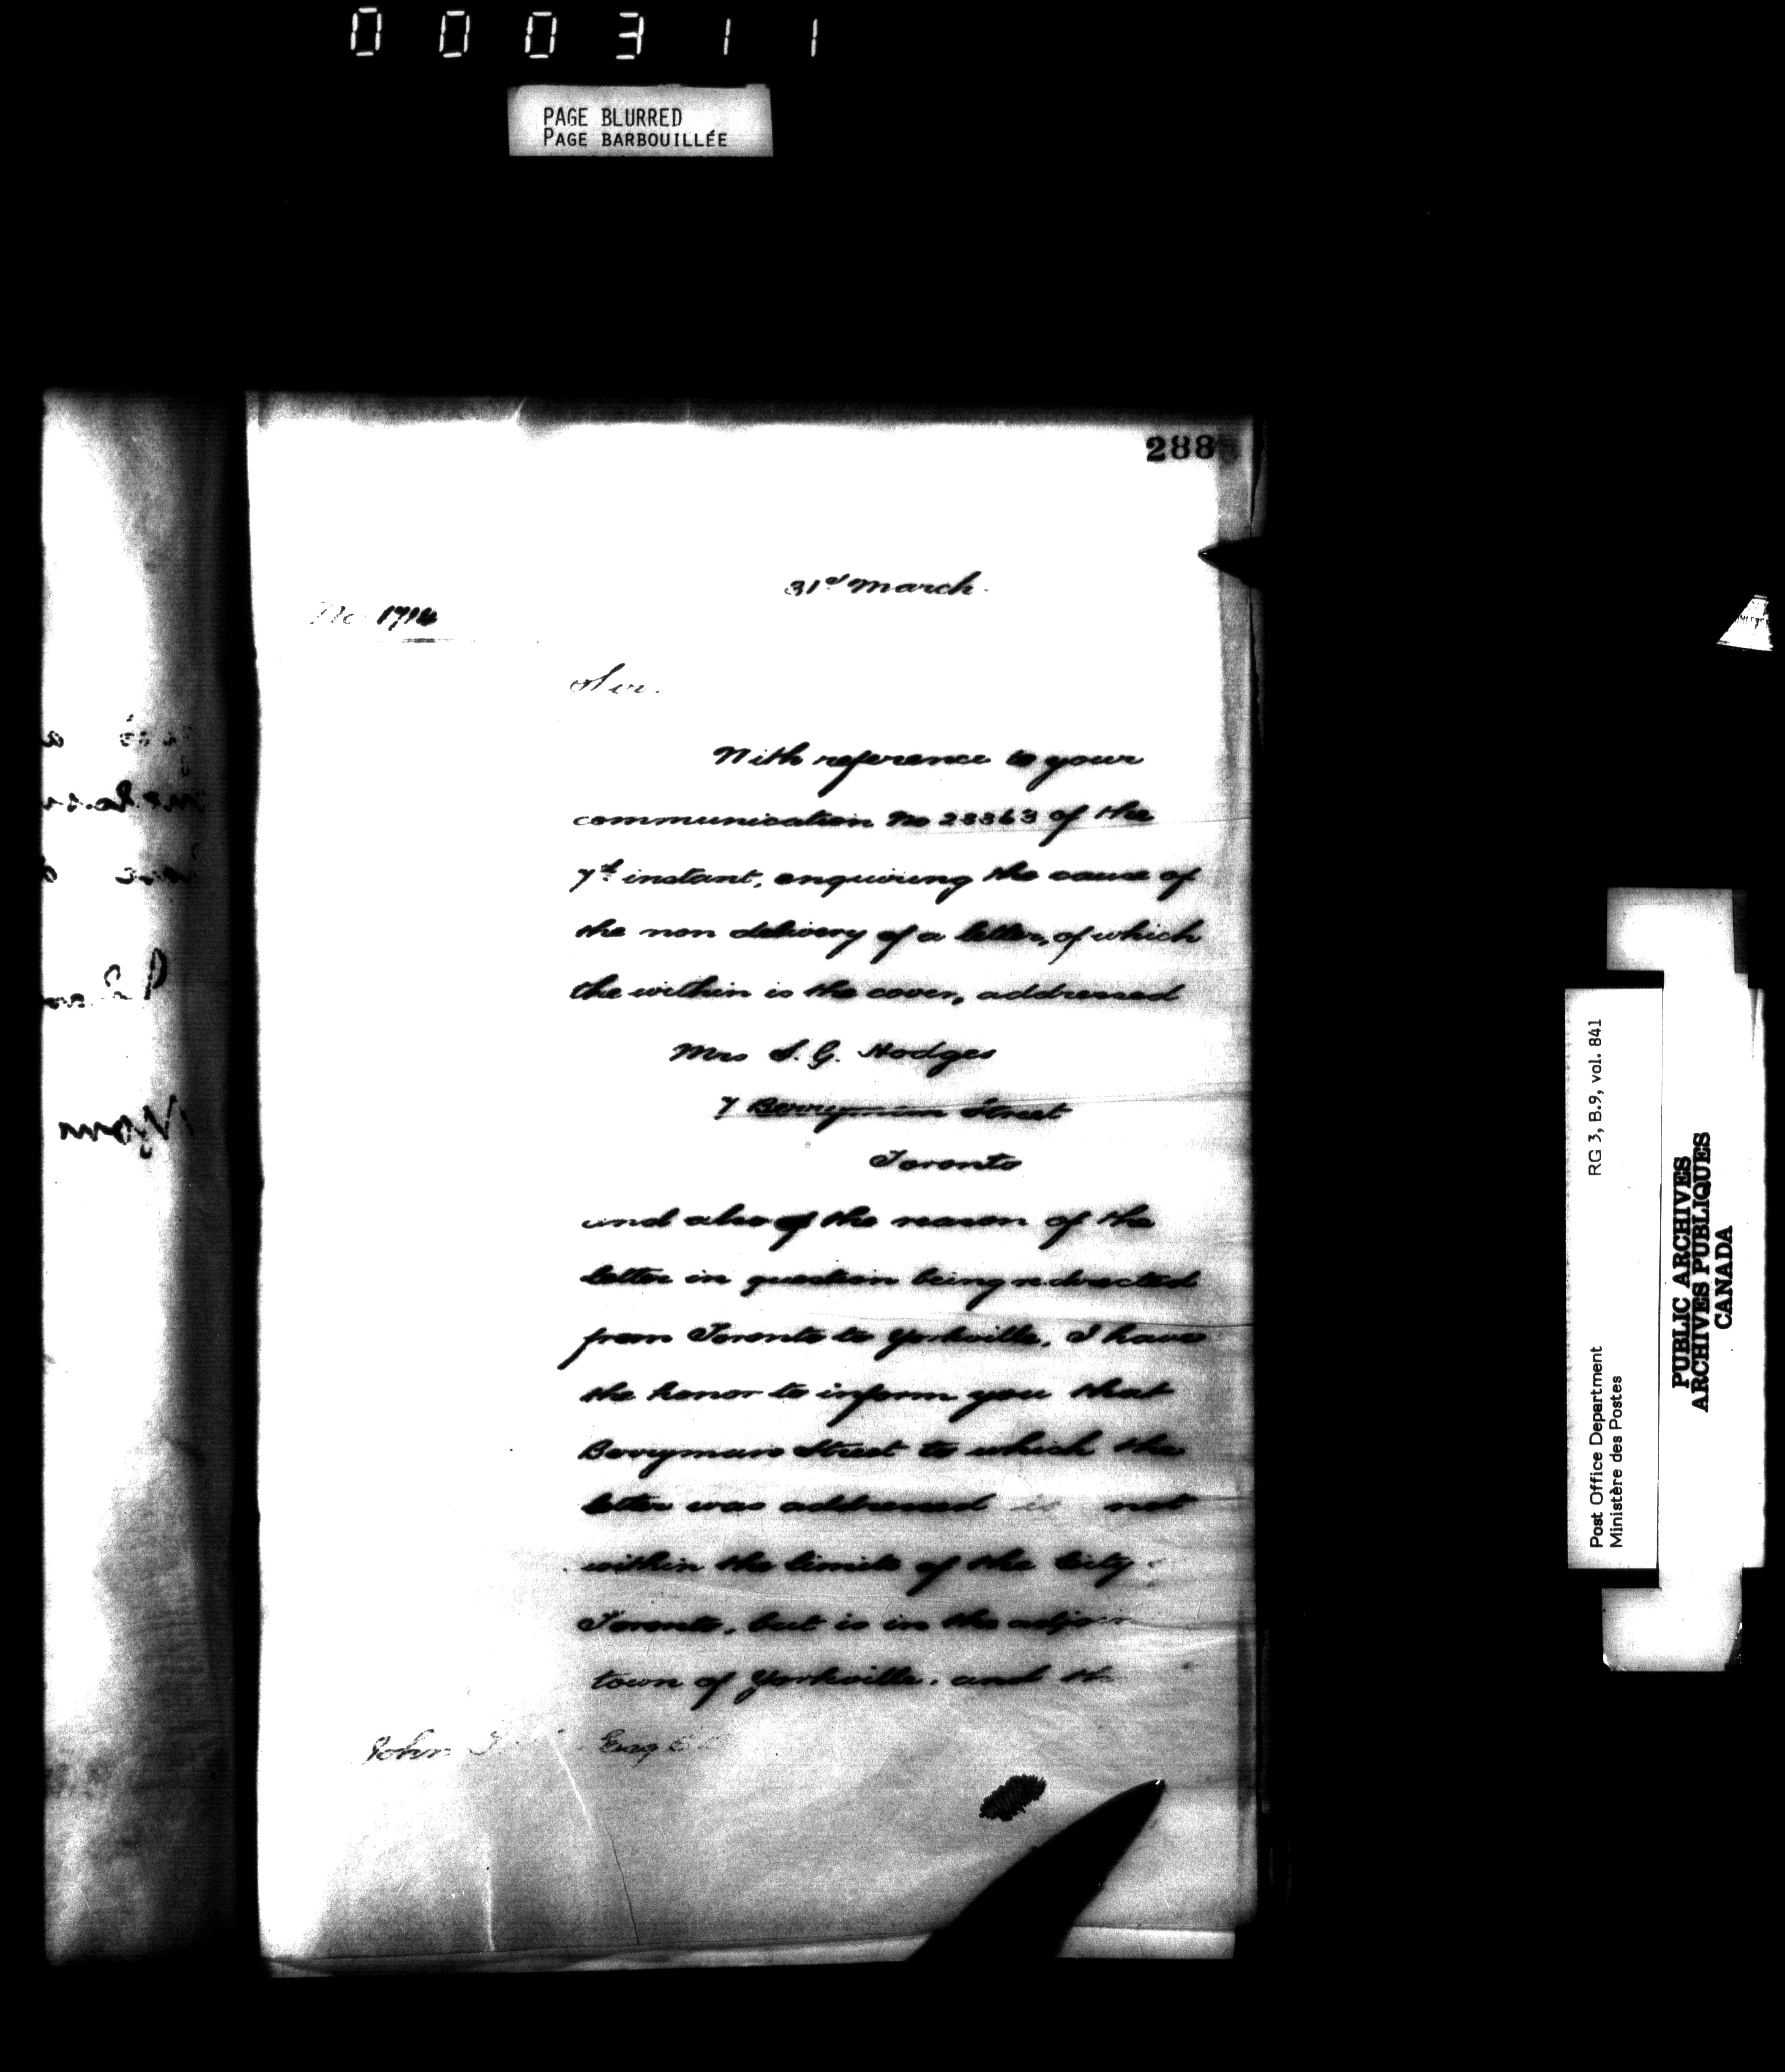 000311
PAGE BLURRED
PAGE BARBOUILLÉE
288
31st March.
No 1714
Sir.
With reference to your
communication No 23363 of the
7th instant, enquiring the cause of
the non delivery of a letter, of which
the within is the cover, addressed
Mrs S. G. Hodges
7 Berryman Street
Toronto
and also of the reason of the
letter in question being redirected
from Toronto to Yorkville, I have
the honor to inform you that
Berryman Street to which the
letter was addressed is not
within the limits of the City
Toronto, but is in the adjoin
town of Yorkville, and th
John Esq
RG 3, B.9, vol. 841
Post Office Department
Ministère des Postes
PUBLIC ARCHIVES
ARCHIVES PUBLIQUES
CANADA